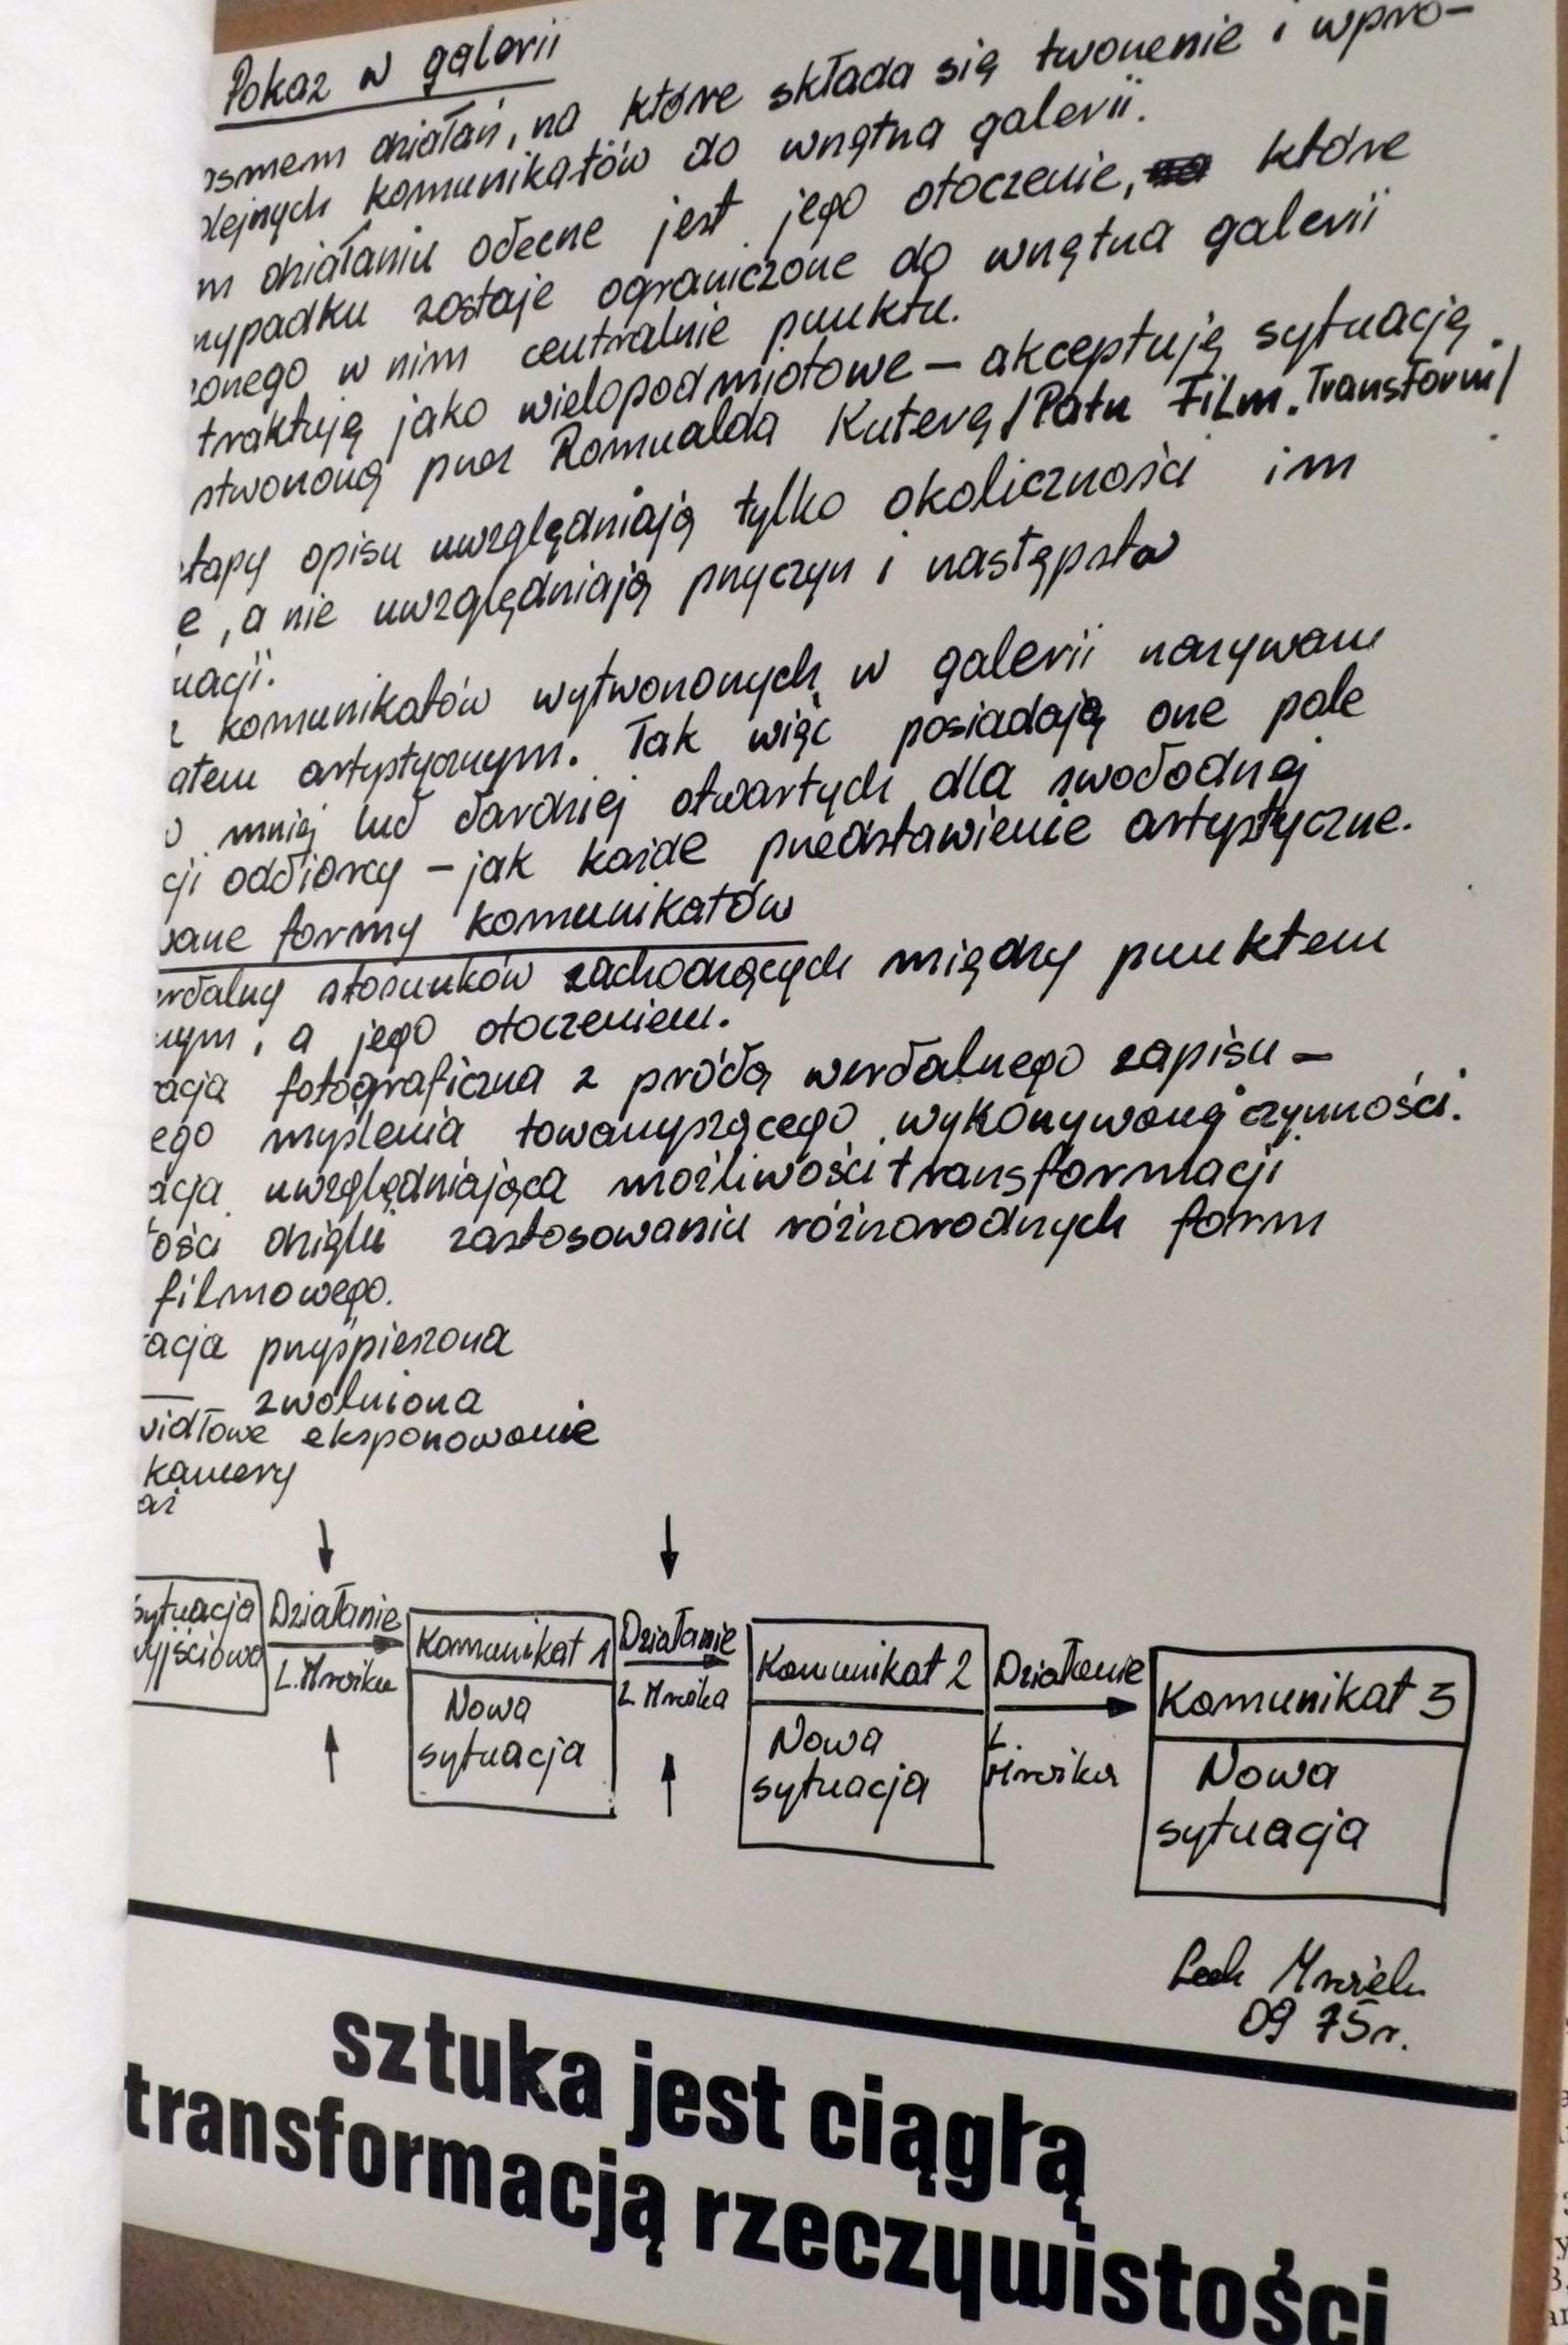 Pokaz w galerii
osmem działań, na które składa się tworzenie i wpro-
olejnych komunikatów do wnętrza galerii.
m działaniu obecne jest jego otoczenie, które
rzypadku zostaje ograniczone do wnętrza galerii
zonego w nim centralnie punktu.
traktują jako wielopodmiotowe – akceptują sytuację
stworzoną przez Romualda Kuterę /Patrz Film. Transform/
etapy opisu uwzględniają tylko okoliczności im
e, a nie uwzględniają przyczyn i następstw
uacji.
z komunikatów wytworzonych w galerii nazywam
atem artystycznym. Tak więc posiadają one pole
o mniej lub bardziej otwartych dla swobodnej
cji odbiorcy – jak każde przedstawienie artystyczne.
wane formy komunikatów
erbalny stosunków zachodzących między punktem
nym, a jego otoczeniem.
racja fotograficzna z próbą werbalnego zapisu –
ego myślenia towarzyszącego wykonywaną czynności.
acja uwzględniająca możliwości transformacji
ości dzięki zastosowaniu różnorodnych form
filmowego.
racja przyśpieszona
— zwolniona
widłowe eksponowanie
kamery
aż
sytuacja
wyjściowa
Działanie
L. Mrożka
Komunikat 1
Nowa
sytuacja
Działanie
L Mrożka
Komunikat 2
Nowa
sytuacja
Działanie
L.
Mrożka
Komunikat 3
Nowa
sytuacja
Lech Mrożek
09 75r.
sztuka jest ciągłą
transformacją rzeczywistości